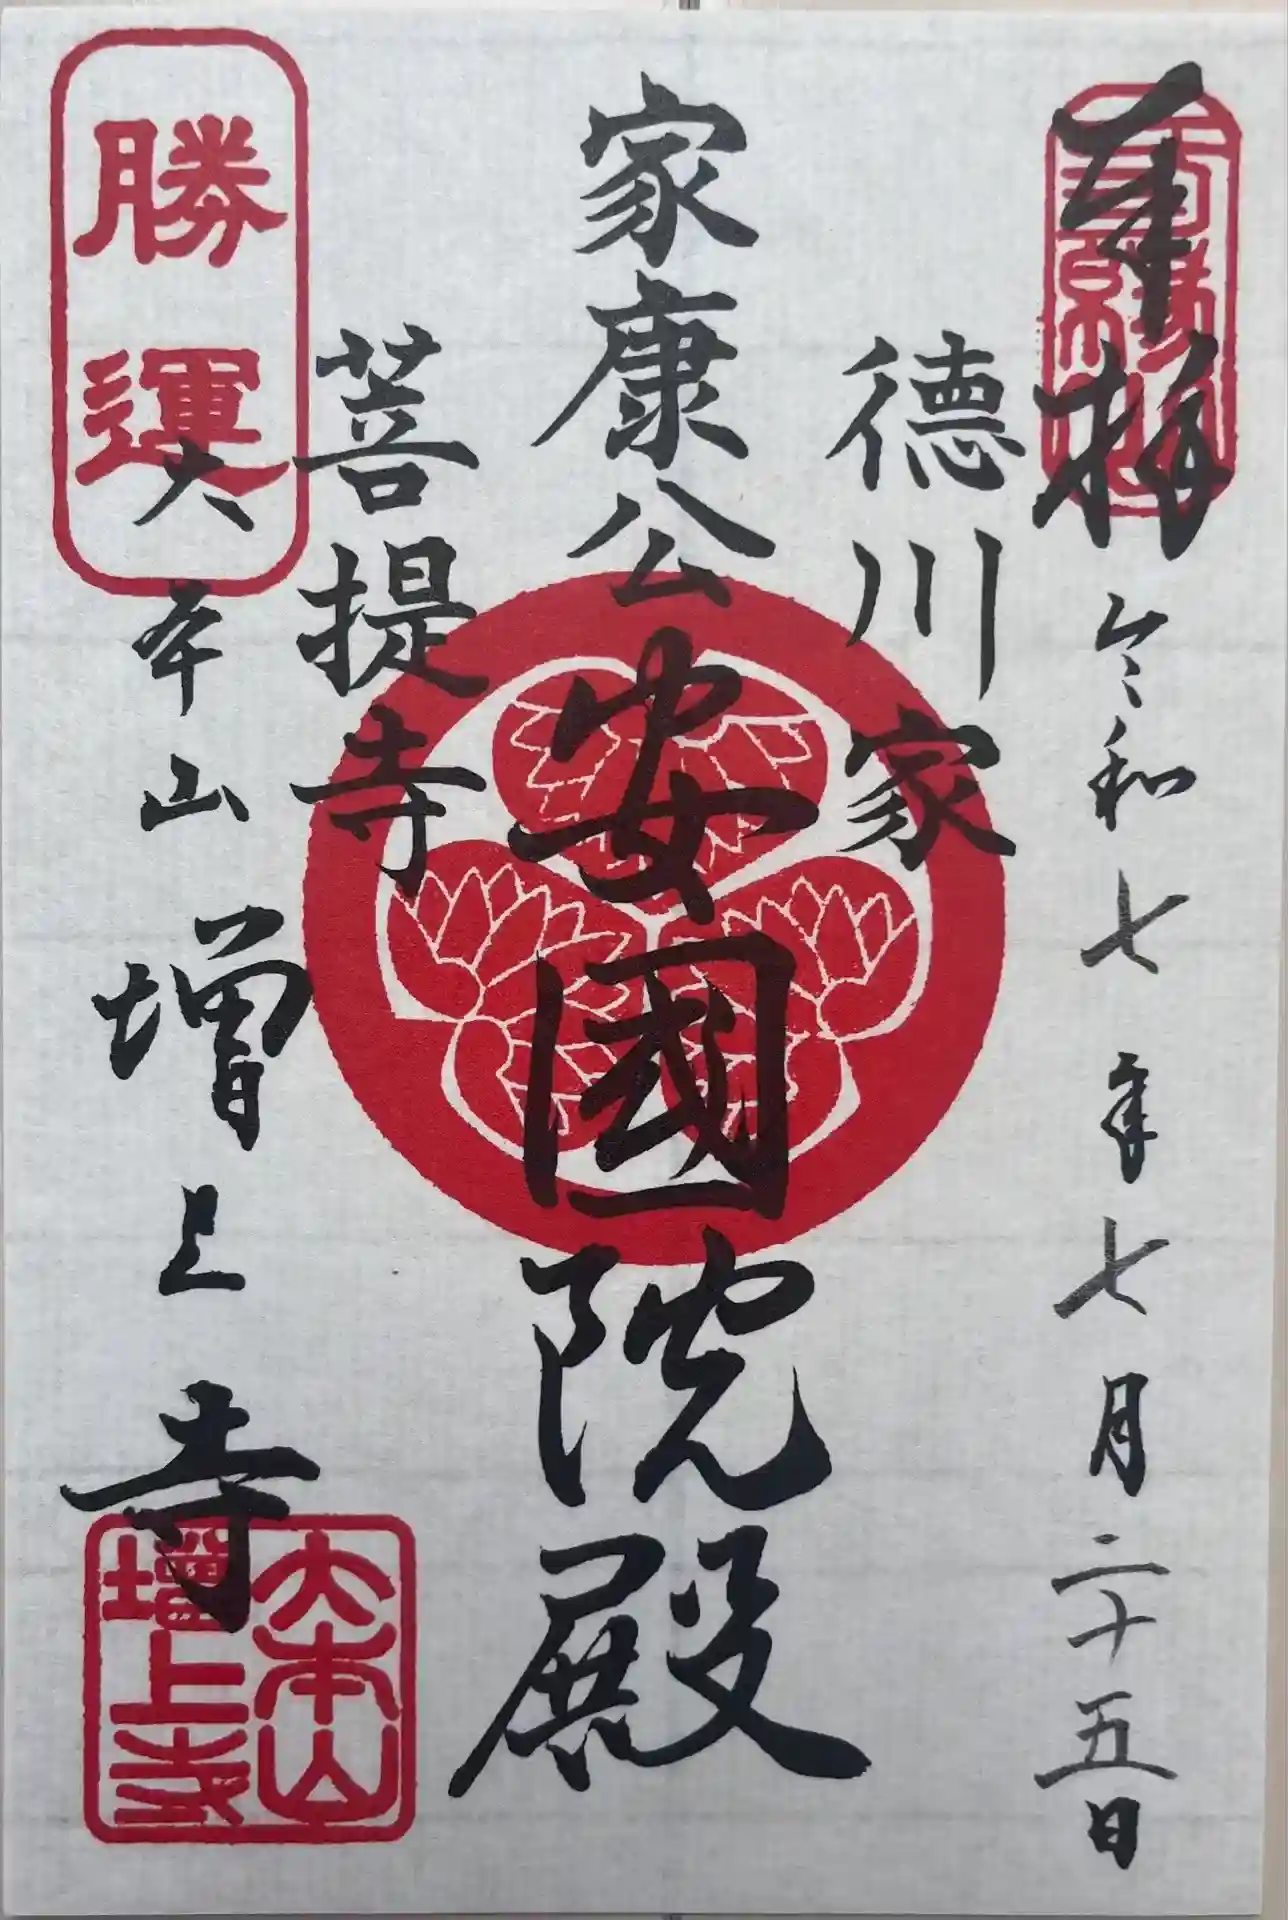 奉拝
令和七年七月二十五日
徳川家
家康公
安國院殿
菩提寺
勝運
大本山増上寺
大本山
増上寺